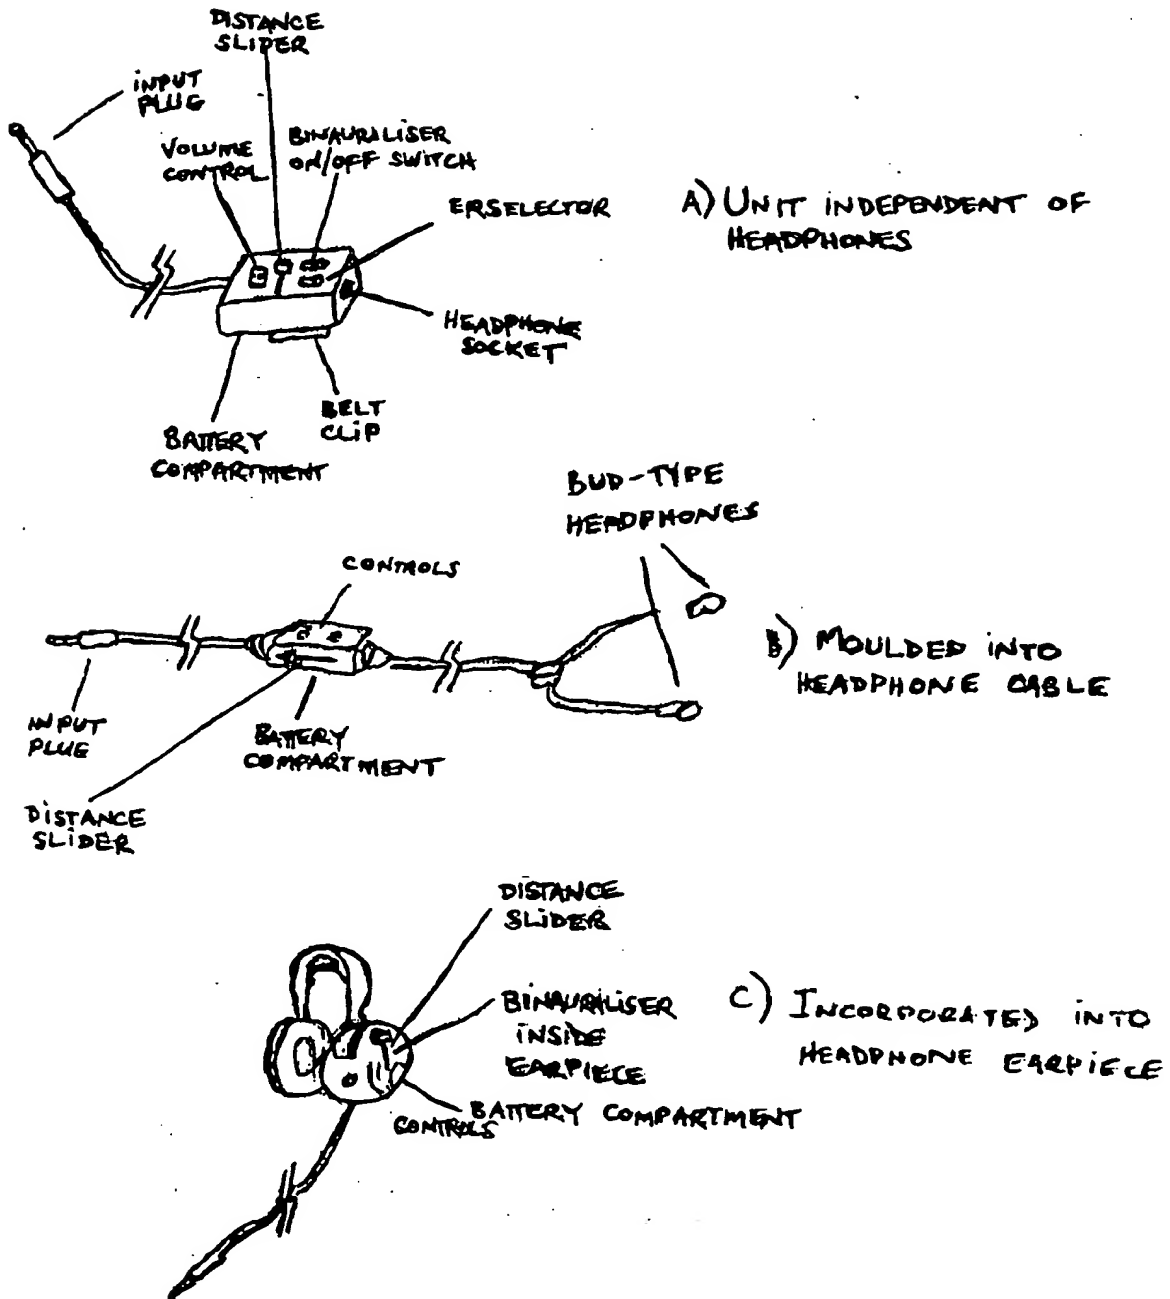 DISTANCE
SLIDER
INPUT
PLUG
VOLUME
CONTROL
BINAURALISER
ON/OFF SWITCH
ERSELECTOR
A) UNIT INDEPENDENT OF
HEADPHONES
HEADPHONE
SOCKET
BELT
CLIP
BATTERY
COMPARTMENT
BUD-TYPE
HEADPHONES
CONTROLS
B) MOULDED INTO
HEADPHONE CABLE
INPUT
PLUG
BATTERY
COMPARTMENT
DISTANCE
SLIDER
DISTANCE
SLIDER
BINAURALISER
INSIDE
EARPIECE
C) INCORPORATED INTO
HEADPHONE EARPIECE
BATTERY COMPARTMENT
CONTROLS